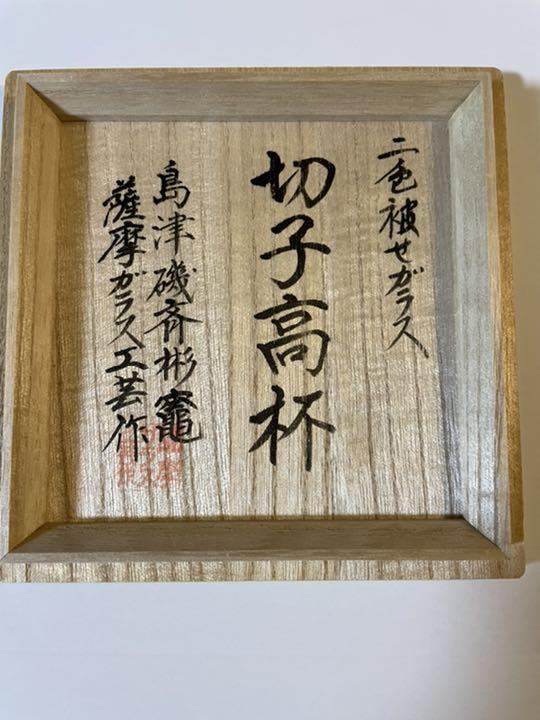 二色被せガラス
切子高杯
島津磯斉彬竈
薩摩ガラス工芸作